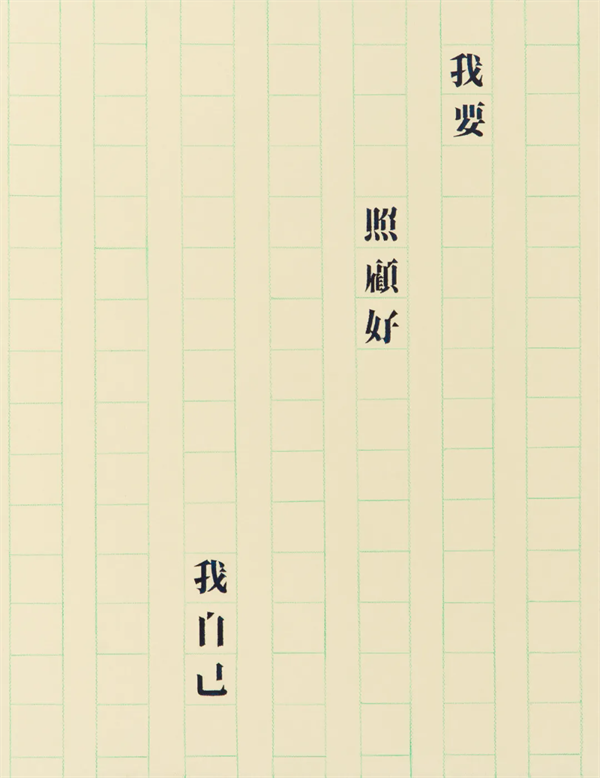 我要
照顧好
我自己